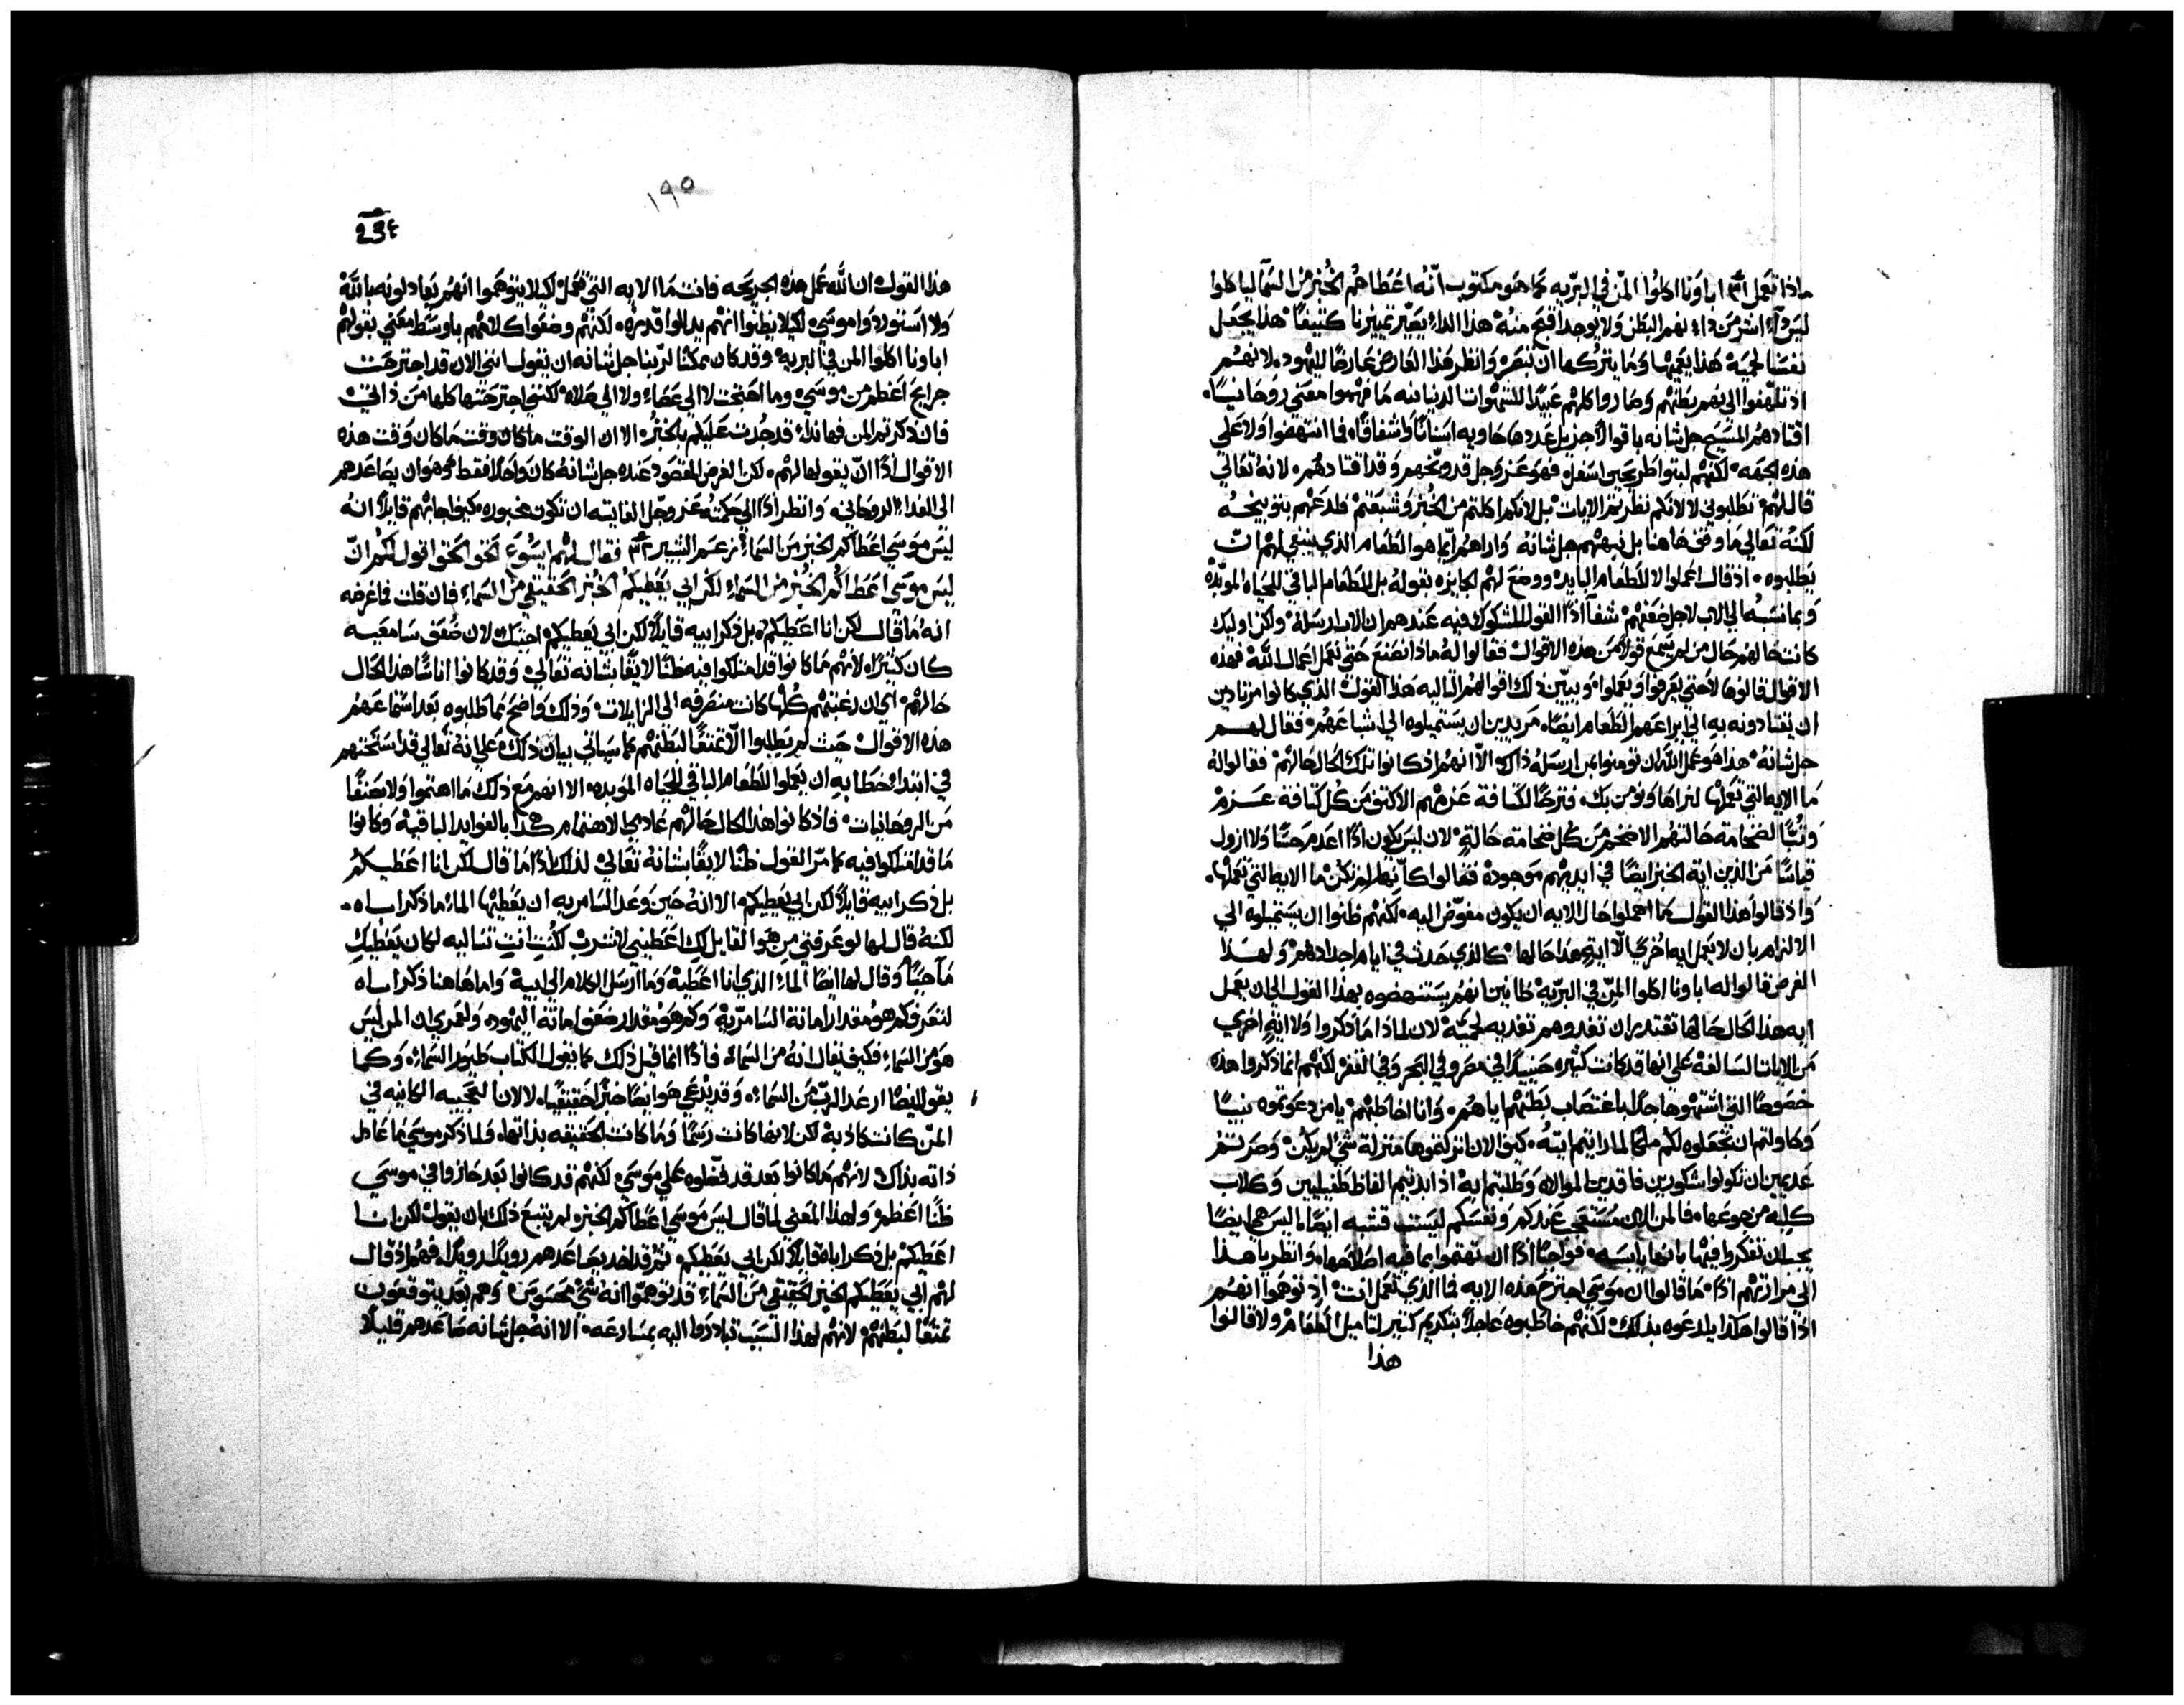 ماذا تعمل اباونا اكلوا المن في البريه كما هو مكتوب انه اعطاهم الخبز من السما لياكلوا
ليس داء اشر من داء نهم البطن ولا يوجد اقبح منه هذا الداء يصير تمييزنا كثيفا هذا يجعل
نفسنا لحميه هذا يعميها وما يتركها ان تبصر وانظر هذا العارض عارضا لليهود لانهم
اذ تلهفوا الى نهم بطنهم وصاروا كلهم عبيدا للشهوات الدنيانيه ما فهموا معنى روحانيا
اقتادهم المسيح جل شانه باقوال جزيل عددها حاويه اسنانا واشفاقا فما انتهضوا ولا على
هذه الجهه لكنهم لبثوا طريحين اسفل فهو عز وجل قد وبخهم وقد اقتادهم لانه تعالى
قال لهم تطلبوني لا لانكم نظرتم الايات بل لانكم اكلتم من الخبز وشبعتم فلدعهم بتوبيخه
لكنه تعالى ما وقف هاهنا بل نبههم جل شانه واراهم ايما هو الطعام الذي ينبغي لهم ان
يطلبوه اذ قال اعملوا لا للطعام البايد ووضع لهم الجايزه بقوله بل للطعام الباقي للحياه الموبده
وبما نسبه الى الاب لاجل ضعفهم شفا اذا القول المشكوك فيه عندهم ان الاب ارسله ولكن اوليك
كانت حالهم حال من لم يسمع قولا من هذه الاقوال فقالوا له ماذا نصنع حتى نعمل اعمال الله فهذه
الاقوال قالوها لا حتى يعرفوا ويعملوا ويبين ذلك اقوالهم التاليه هذا القول الذي كانوا مرتادين
ان يقتادونه به الى براعهم الطعام ايضا مريدين ان يستميلوه الى اشباعهم فقال لهم
جل شانه هذا هو عمل الله ان تومنوا بمن ارسله ذاك الا انهم اذ كانوا تلك الحال حالهم فقالوا له
ما الايه التي تعملها لنراها ونومن بك فترحا لكثافة عزمهم الاكثف من كل كثافة عزم
وتبا لضخامة حالتهم الاضخم من كل ضخامة حالة لان ليس يكون اذا اعدم حسا ولا ارول
قياسا من الذين اية الخبز ايضا في ايديهم موجودة فقالوا كانها لم تكن ما الايه التي تعملها
واذ قالوا هذا القول ما اهملوا حال الايه ان يكون مفوض اليه لكنهم ظنوا ان يستميلوه الى
الالزام بان لا يعمل ايه اخرى الا اية هذا حالها كالذي حدث في ايام اجدادهم ولهذا
الغرض قالوا له اباونا اكلوا المن في البريه ظانين انهم يستنهضوه بهذا القول الى ان يعمل
ايه هذا الحال حالها تقتدر ان تغدوهم تغديه لحميه لان لماذا ما ذكروا ولا اية اخرى
من الايات السالفة على انها قد كانت كثيره حينيذ في مصر وفي البحر وفي القفر لكنهم انما ذكروا هذه
خصوصا التي اشتهوها جدا باغتصاب بطنهم اياهم وانا اخاطبهم يا من دعوتموه نبيا
وحاولتم ان تجعلوه لكم ملكا لما رايتم ايته كيف الان انزلتموها منزلة شي لم يكن وصرتم
عديمين ان تكونوا شكورين فاقدين الموالاه وطلبتم ايه اذ ابديتم الفاظ طفيليين وكلاب
كلبه من جوعها فالمن الان مستعجب عندكم ونفسكم ليست قشبه ايضا
يجب ان تفكروا فيها بانها يابسه فواجبا اذا ان تهتموا بما فيه اصلاحها وانظر يا هذا
الى مراوتهم اذا ما قالوا ان موسى اجترح هذه الايه فما الذي تعمل انت اذ توهموا انهم
اذا قالوا هكذا يلدعوه بذلك لكنهم خاطبوه عاجلا بتكريم كثير لتاميل الطعام ولا قالوا
هذا
١٩٥
هذا القول ان الله عمل هذه الجريحه فانت ما الايه التي تعمل لكيلا يتوهموا انهم يعادلونه بالله
ولا استوردوا موسى لكيلا يظنوا انهم يذالوا قدره لكنهم وضعوا كلامهم باوسط معنى بقولهم
اباونا اكلوا المن في البريه وقد كان يمكننا لربنا جل شانه ان يقول انني الان قد اجترحت
جرايح اعظم من موسى وما احتجت لا الى عصاء ولا الى صلاه لكنني اجترحتها كلها من ذاتي
فان ذكرتم المن فهانذا قد جدت عليكم بالخبز الا ان الوقت ما كان وقت ما كان وقت هذه
الاقوال اذا ان يقولها لهم لكن الغرض المقصود عنده جل شانه كان واحدا فقط وهو ان يصاعدهم
الى الغداء الروحاني وانظر اذا الى حكمته عز وجل الفايته ان تكون مخبوره كيف اجابهم قايلا انه
ليس موسى اعطاكم الخبز من السماء فقال لهم ايسوع الحق الحق اقول لكم ان
ليس موسى اعطاكم الخبز من السماء لكن ابي يعطيكم الخبز الحقيقي من السماء فان قلت فما غرضه
انه ما قال لكن انا اعطيكم بل ذكر ابيه قايلا لكن ابي يعطيكم اجبتك لان ضعف سامعيه
كان كثيرا لانهم ما كانوا قد امتلكوا فيه ظنا لايقا بشانه تعالى وقد كانوا اناسا هذا الحال
حالهم اي ان رغبتهم كلها كانت منصرفه الى الزايلات وذلك واضح مما طلبوه بعد استماعهم
هذه الاقوال حيث لم يطلبوا الا تمتعا لبطنهم كما سياتي بيان ذلك على انه تعالى قد استحثهم
في ابتداء خطابه ان يعملوا للطعام الباقي للحياه الموبده الا انهم مع ذلك ما اهتموا ولا بصنفا
من الروحانيات فاذ كانوا هذا الحال حالهم عادمي الاهتمام جدا بالفوايد الباقيه وكانوا
ما قد امتلكوا فيه كما مر القول ظنا لايقا بشانه تعالى لذلك اذا ما قال لكن انا اعطيكم
بل ذكر ابيه قايلا لكن ابي يعطيكم الا انه حين وعد السامريه ان يعطيها الماء ما ذكر اباه
لكنه قال لها لو عرفتي من هو القايل لك اعطيني لاشرب لكنت انت تساليه لكان يعطيك
ماء حيا وقال لها ايضا الماء الذي انا اعطيه وما ارسل الكلام الى ابيه واما هاهنا ذكر اباه
لتعرف كم هو مقدار امانة السامريه وكم هو مقدار ضعف امانة اليهود ولعمري ان المن ليس
هو من السماء فكيف يقال انه من السماء فاذا انما قيل ذلك كما يقول الكتاب طيور السماء وكما
يقول ايضا ارعد الرب من السماء وقد يدعى هو ايضا خبزا حقيقيا لا لان العجيبه الكاينه في
المن كانت كاذبة لكن لانها كانت رسما وما كانت الحقيقه بذاتها ولما ذكر موسى ما عادل
ذاته بذاك لانهم ما كانوا بعد قد فضلوه على موسى لكنهم قد كانوا بعد حازوا في موسى
ظنا اعظم ولهذا المعنى لما قال ليس موسى اعطاكم الخبز لم يتبع ذلك بان يقول لكن انا
اعطيكم بل ذكر اباه قايلا لكن ابي يعطيكم ثم قد اخد يصاعدهم رويدا رويدا فهم اذ قال
لهم ابي يعطيكم الخبز الحقيقي من السماء قد توهموا انه شي محسوس وهم بعد يتوقعون
تمتعا لبطنهم لانهم لهذا السبب تبادروا اليه بمسارعه الا انه جل شانه صاعدهم قليلا